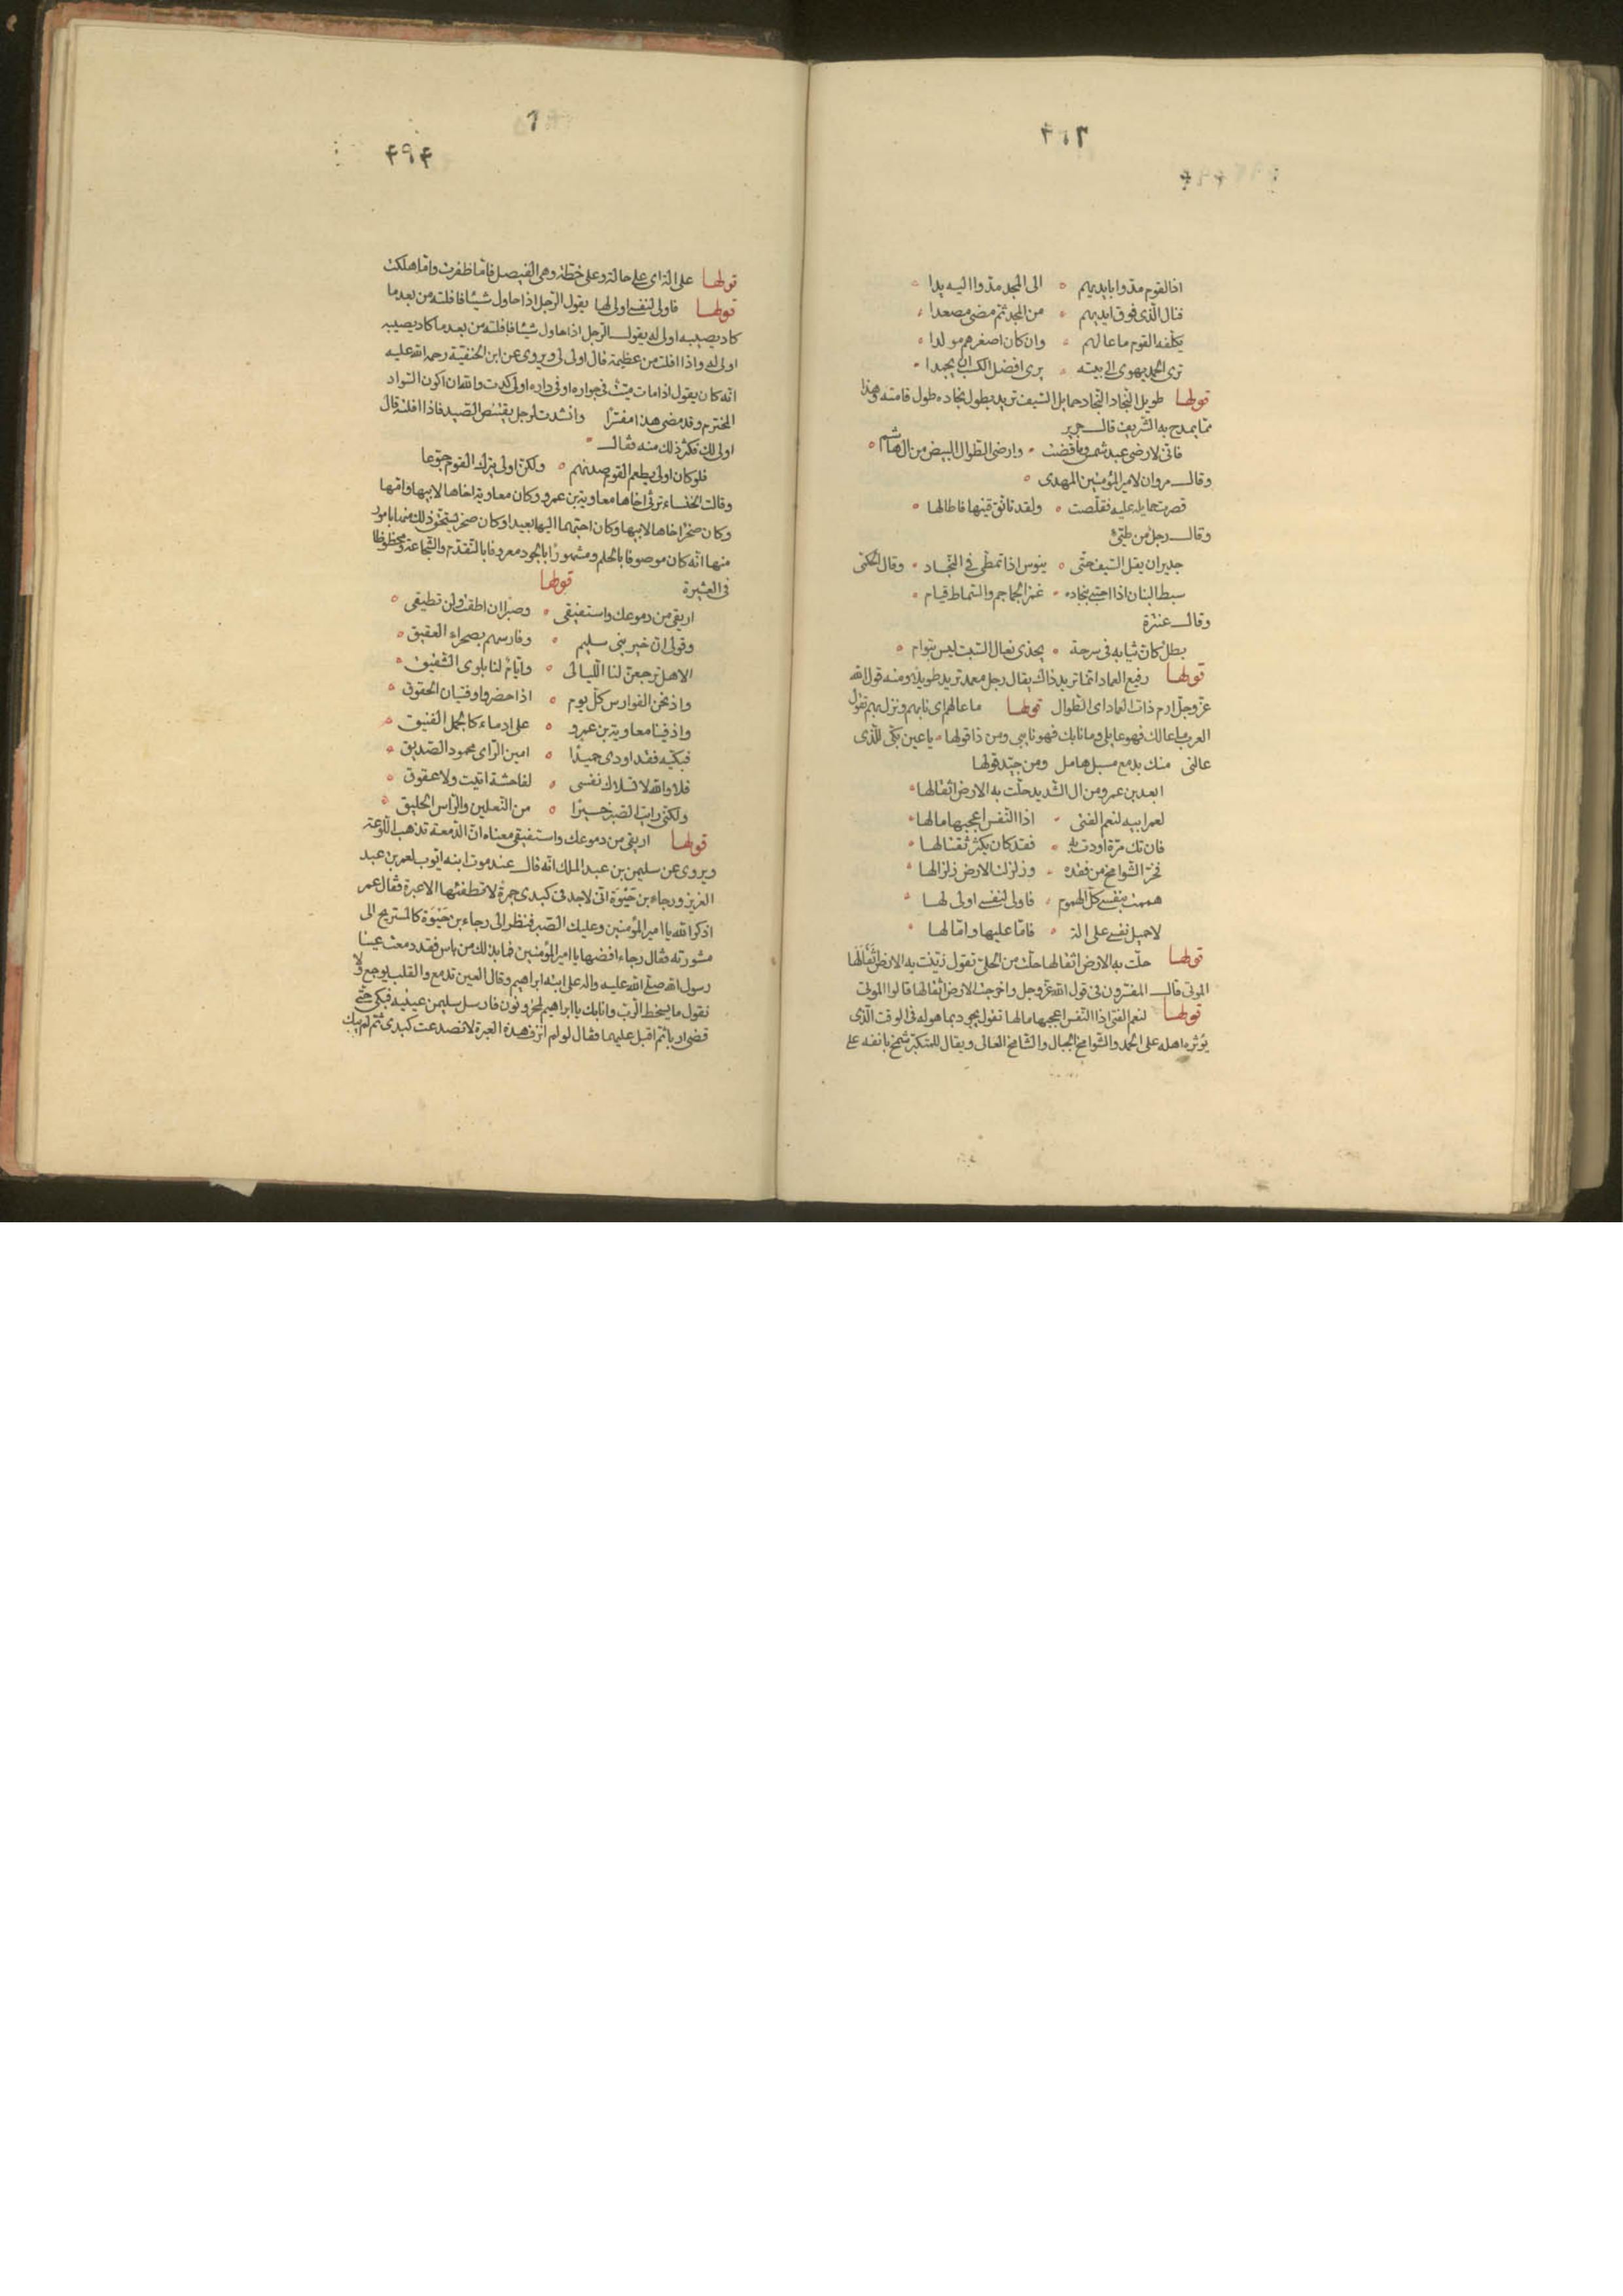 ٢١٢
اذا القوم مدوا بايديهم ٥ الى المجد مدوا اليه يدا
فنال الذى فوق ايديهم ٥ من المجد ثم مضى مصعدا
يكلفه القوم ما عالهم ٥ وان كان اصغرهم مولدا
ترى الحمد يهوى الى بيته ٥ يرى افضل الكسب ان يحمدا
قولها طويل النجاد النجاد حمايل السيف تريد بطول نجاده طول قامته وهذا
مما يمدح به الشريف قال جرير
فانى لارضى عبد شمس وما قضت ٥ وارضى الطوال البيض من ال هاشم
وقال مروان لامير المؤمنين المهدى
قصرت حمايله عليه فقلصت ٥ ولقد تانق قينها فاطالها
وقال رجل من طيئ
جدير ان يقل السيف حتى ٥ ينوس اذا تمطى فى النجاد ٥ وقال الحكمى
سبط البنان اذا احتبى بنجاده ٥ غمر الجماجم والسماط قيام
وقال عنترة
بطل كان ثيابه فى سرحة ٥ يحذى نعال السبت ليس بتوام
قولها رفيع العماد انما تريد ذاك يقال رجل معمد تريد طويلا ومنه قول الله
عز وجل ارم ذات العماد اى الطوال قولها ما عالهم اى نابهم ونزل بهم تقول
العرب ما عالك فهو عايلى وما نابك فهو نايبى ومن ذا قولها ٥ يا عين بكى للذى
عالنى منك بدمع مسبل هامل ومن جيد قولها
ابعد بن عمرو من ال الشريد حلت به الارض اثقالها
لعمر ابيه لنعم الفتى ٥ اذا النفس اعجبها مالها
فان تك مرة اودت به ٥ فقد كان يكثر تقتالها
تخر الشوامخ من فقده ٥ وزلزلت الارض زلزالها
هممت بنفسى كل الهموم ٥ فاولى لنفسى اولى لها
لاحمل نفسى على الة ٥ فاما عليها واما لها
قولها حلت به الارض اثقالها حلت من الحلى تقول زينت به الارض اثقالها
الموتى قال المفسرون فى قول الله عز وجل واخرجت الارض اثقالها قالوا الموتى
قولها لنعم الفتى اذا النفس اعجبها مالها تقول يجود بما هو له فى الوقت الذى
يؤثره اهله على الحمد والشوامخ الجبال والشامخ العالى ويقال للمتكبر شمخ بانفه على
٦
٤٩٤
قولها على الة اى على حالة وعلى خطة وهى الفيصل فاما ظفرت واما هلكت
قولها فاولى لنفسى اولى لها يقول الرجل اذا حاول شيئا فافلته من بعد ما
كاد يصيبه اولى له يقول الرجل اذا حاول شيئا فافلته من بعد ما كاد يصيبه
اولى له واذا افلت من عظيمة قال اولى لى ويروى عن ابن الحنفية رحمه الله عليه
انه كان يقول اذا مات ميت فى جواره او فى داره اولى لى كدت والله ان اكون السواد
المخترم وقد مضى هذا مفسرا وانشدت لرجل يقتنص الصيد فاذا افلته قال
اولى لك فكثر ذلك منه فقال
فلو كان اولى يطعم القوم صدتهم ٥ ولكن اولى يترك القوم جوعا
وقالت الخنساء ترثى اخاها معاوية بن عمرو وكان معاوية اخاها لابيها وامها
وكان صخر اخاها لابيها وكان احبهما اليها بعيدا وكان صخر يستحق ذلك منها بامور
منها انه كان موصوفا بالحلم ومشهورا بالجود معروفا بالتقدم والشجاعة ومحظوظا
فى العشيرة قولها
اريقى من دموعك واستفيقى ٥ وصبرا ان اطقت ولن تطيقى
وقولى ان خير بنى سليم ٥ وفارسهم بصحراء العقيق
الا هل ترجعن لنا الليالى ٥ وايام لنا بلوى الشقيق
واذ نحن الفوارس كل يوم ٥ اذا حضروا وفتيان الحقوق
واذ فينا معاوية بن عمرو ٥ على ادماء كالجمل الفنيق
فبكيه فقد اودى حميدا ٥ امين الراى محمود الصديق
فلا والله لا تسلاك نفسى ٥ لفاحشة اتيت ولا عقوق
ولكنى رايت الصبر خيرا ٥ من النعلين والراس الحليق
قولها اريقى من دموعك واستفيقى معناه ان الدمعة تذهب اللوعة
ويروى عن سليمن بن عبد الملك انه قال عند موت ابنه ايوب لعمر بن عبد
العزيز ورجاء بن حيوة انى لاجد فى كبدى جمرة لا تطفئها الا عبرة فقال عمر
اذكر الله يا امير المؤمنين وعليك الصبر فنظر الى رجاء بن حيوة كالمستريح الى
مشورته فقال رجاء افضها يا امير المؤمنين فما بذلك من باس فقد دمعت عينا
رسول الله صلى الله عليه واله على ابنه ابراهيم وقال العين تدمع والقلب يوجع ولا
نقول ما يسخط الرب وانا بك يا ابراهيم لمحزونون فارسل سليمن عينيه فبكى حتى
قضى اربا ثم اقبل عليهما فقال لو لم انزف هذه العبرة لانصدعت كبدى ثم لم يبك